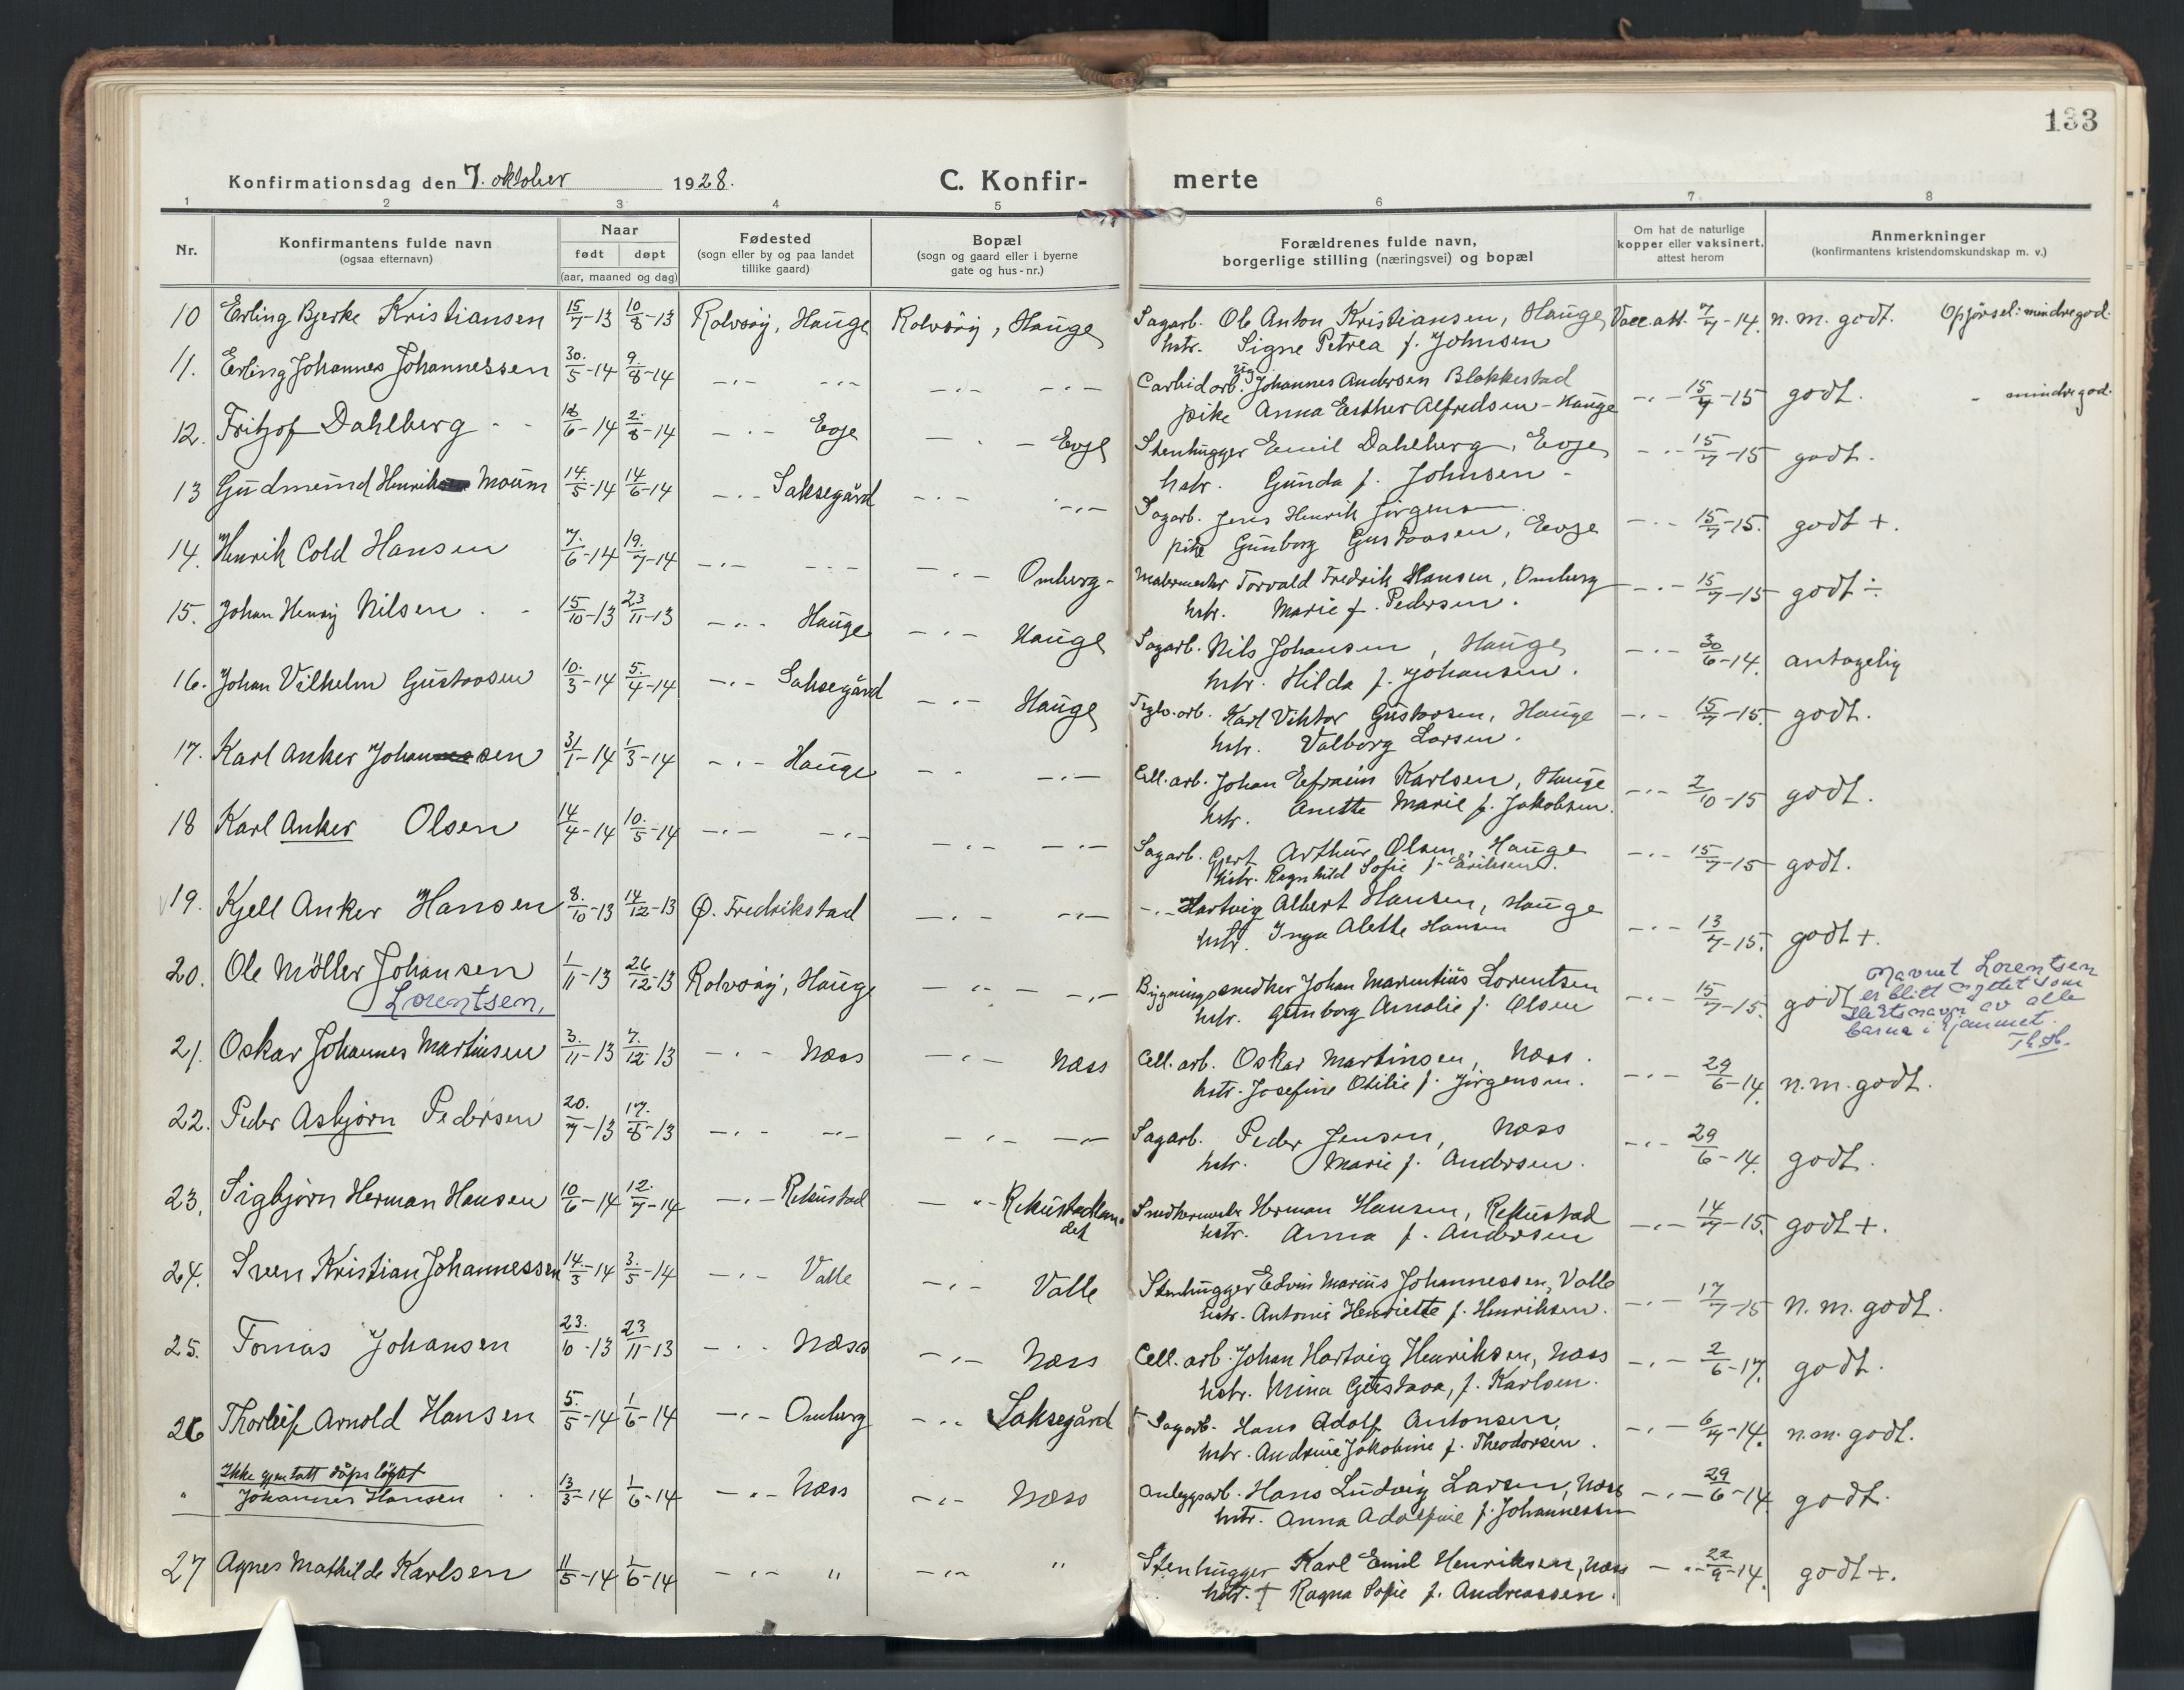 133
Konfirmationsdag den 7. oktober 1928. C. Konfirmerte
1 2 3 4 5 6 7 8
Nr. Konfirmantens fulde navn (ogsaa efternavn) Naar født døpt (aar, maaned og dag) Fødested (sogn eller by og paa landet tillike gaard) Bopæl (sogn og gaard eller i byerne gate og hus-nr.) Forældrenes fulde navn, borgerlige stilling (næringsvei) og bopæl Om hat de naturlige kopper eller vaksinert, attest herom Anmerkninger (konfirmantens kristendomskundskap m. v.)
10 Erling Bjerke Kristiansen 15/7-13 10/8-13 Rolvsøy, Hauge Rolvsøy, Hauge Sagarb. Ole Anton Kristiansen, Hauge Vacc. att. 7/7-14. n. m. godt. Opførsel: mindre god.
hstr. Signe Petrea f. Johnsen
11. Erling Johannes Johannessen 30./5-14 9./8-14 -"- -"- -"- -"- Carbidarb. Johannes Andersen Blakkestad -"- 15/7-15 godt. " mindre god.
pike Anna Esther Alfredsen - Hauge
12. Fritjof Dahlberg 18/6-14 2./8-14 -"- Evje -"- Evje Stenhugger Emil Dahlberg, Evje -"- 15/7-15 godt.
hstr. Gunda f. Johnsen
13 Gudmund Henrik Moum 14./5-14 14/6-14 -"- Saksegård -"- -"- Sagarb. Jens Henrik Jørgensen -"- 15/7-15. godt +.
pike Gunborg Gustavsen, Evje
14. Henrik Cold Hansen 7./6-14 19./7-14 -"- -"- -"- Omberg Malermester Torvald Fredrik Hansen, Omberg -"- 15/7-15 godt ÷
hstr. Marie f. Pedersen.
15. Johan Henry Nilsen 15/10-13 23/11-13 -"- Hauge -"- Hauge Sagarb. Nils Johansen, Hauge -"- 30/6-14. antagelig
hstr. Hilda f. Johansen.
16. Johan Vilhelm Gustavsen 10./3-14 5./4-14 -"- Saksegård -"- Hauge Teglv.arb. Karl Viktor Gustavsen, Hauge -"- 15/7-15. godt.
hstr. Valborg Larsen.
17. Karl Anker Johansen 31/1-14 1/3-14 -"- Hauge -"- -"- Cell. arb. Johan Efraim Karlsen, Hauge -"- 2/10-15 godt.
hstr. Anette Marie f. Jakobsen.
18 Karl Anker Olsen 14/4-14 10./5-14 -"- -"- -"- -"- Sagarb. Gert Arthur Olsen, Hauge -"- 15/7-15 godt.
hstr. Ragnhild Sofie f. Eriksen.
19. Kjell Anker Hansen 8./10-13 14/12-13 Ø. Fredrikstad -"- -"- -"- Hartvig Albert Hansen, Hauge -"- 13/7-15. godt +.
hstr. Inga Alette Hansen
20. Ole Møller Johansen 1/11-13 26/12-13 Rolvsøy, Hauge -"- -"- Bygningssnedker Johan Marentius Lorentsen -"- 15/7-15. godt
Lorentsen. hstr. Gunborg Amalie f. Olsen
Navnet Lorentsen
er blitt nyttet som
slektsnavn av alle
barna i hjemmet.
21. Oskar Johannes Martinsen 3./11-13 7./12-13 -"- Næss -"- Næss Cell. arb. Oskar Martinsen, Næss. -"- 29/6-14. n. m. godt.
hstr. Josefine Otilie f. Jørgensen.
22. Peder Asbjørn Pedersen 20./7-13 17./8-13 -"- -"- -"- -"- Sagarb. Peder Jensen, Næss -"- 29/6-14. godt.
hstr. Marie f. Andersen.
23. Sigbjørn Herman Hansen 10/6-14 12./7-14 -"- Rekustad -"- Rekustadlandet Snedkermester Herman Hansen, Rekustad -"- 14/7-15. godt +.
hstr. Anna f. Andersen
24. Sven Kristian Johannessen 14./3-14 3./5-14 -"- Valle -"- Valle Stenhugger Edvin Marius Johannessen, Valle -"- 17/7-15 n. m. godt.
hstr. Antonie Henriette f. Henriksen.
25. Tomas Johansen 23./10-13 23/11-13 -"- Næss -"- Næss Cell. arb. Johan Hartvig Henriksen, Næss -"- 2/6-17. godt.
hstr. Mina Gustava, f. Karlsen.
26 Thorleif Arnold Hansen 5./5-14 1/6-14 -"- Omberg -"- Saksegård † Sagarb. Hans Adolf Antonsen, -"- 6/7-14. n. m. godt.
hstr. Andrine Jakobine f. Theodorsen.
Ikke gjentatt dåpsløftet
" Johannes Hansen 13/3-14 1/6-14 -"- Næss -"- Næss Anleggsarb. Hans Ludvig Larsen, Næss -"- 29/6-14. godt.
hstr. Anna Adolfine f. Johannessen
27 Agnes Mathilde Karlsen 11/5-14 1/6-14 -"- " -"- " Stenhugger Karl Emil Henriksen, Næss -"- 22/9-14. godt +.
hstr. † Ragna Sofie f. Andreassen.